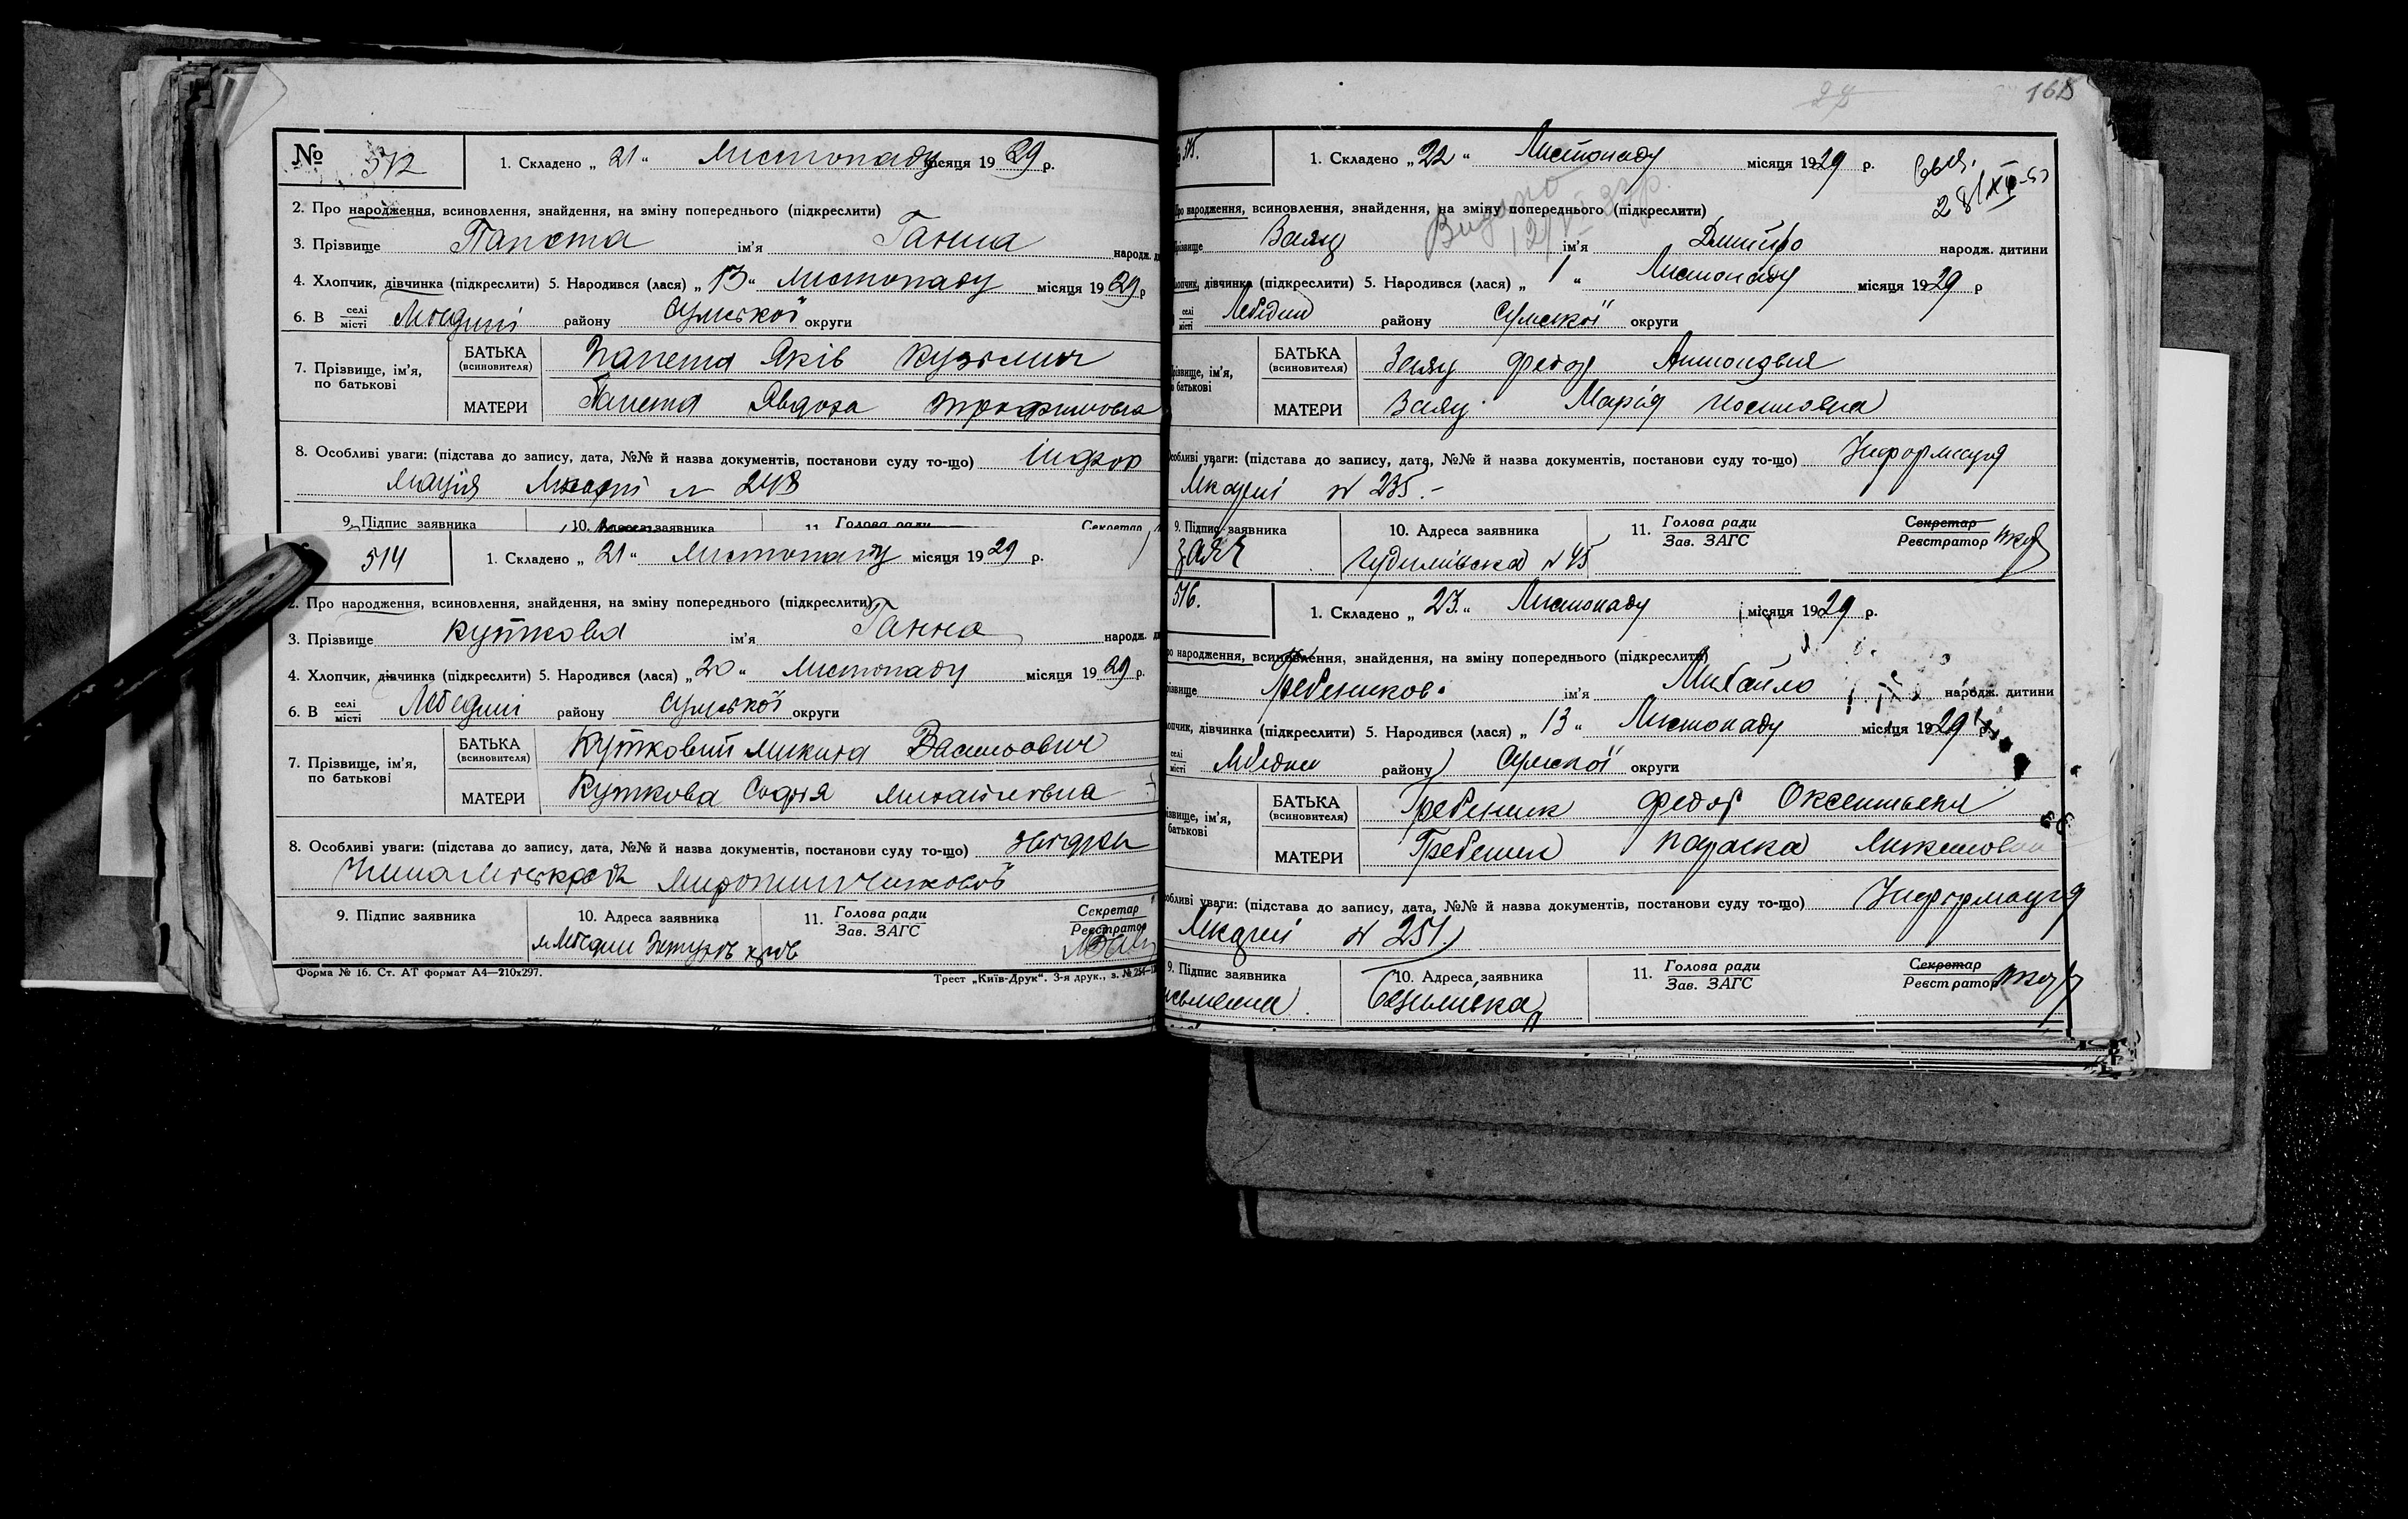 № 512
1. Складено „ 21 “ Листопаду місяця 19 29 р.
2. Про народження, всиновлення, знайдення, на зміну попереднього (підкреслити)
3. Прізвище Папета ім'я Ганна народж.
4. Хлопчик, дівчинка (підкреслити) 5. Народився (лася) „ 13 “ листопаду місяця 19 29 р
6. В селі місті Лебедині району Сумської округи
7. Прізвище, ім'я, по батькові
БАТЬКА (всиновителя) Папета Яків Кузьмич
МАТЕРИ Папета Явдоха Трофимовна
8. Особливі уваги: (підстава до запису, дата, №№ й назва документів, постанови суду то-що) Інфор
мація № 248
9. Підпис заявника 10. Адреса заявника 11. Голова ради Секретар
514
1. Складено „ 21 “ Листопаду місяця 19 29 р.
2. Про народження, всиновлення, знайдення, на зміну попереднього (підкреслити)
3. Прізвище Куткова ім'я Ганна народж.
4. Хлопчик, дівчинка (підкреслити) 5. Народився (лася) „ 20 “ Листопаду місяця 19 29 р.
6. В селі місті Лебедині району Сумської округи
7. Прізвище, ім'я, по батькові
БАТЬКА (всиновителя) Кутковий Микита Васильович
МАТЕРИ Куткова Софія Михайловна
8. Особливі уваги: (підстава до запису, дата, №№ й назва документів, постанови суду то-що)
9. Підпис заявника 10. Адреса заявника 11. Голова ради Зав. ЗАГС Секретар Реєстратор
м Лебедин
Форма № 16. Ст. АТ формат А4—210х297. Трест „Київ-Друк“. 3-я друк., з. №
28
165
515.
1. Складено „ 22 “ Листопаду місяця 19 29 р.
выд.
28/XII-53
Видано
Про народження, всиновлення, знайдення, на зміну попереднього (підкреслити)
Прізвище Заяц ім'я Дмитро народж. дитини
Хлопчик, дівчинка (підкреслити) 5. Народився (лася) „ 1 “ Листопаду місяця 19 29 р
селі місті Лебедин району Сумської округи
Прізвище, ім'я, по батькові
БАТЬКА (всиновителя) Заяц Федор
МАТЕРИ Заяц Марія Иосиповна
Особливі уваги: (підстава до запису, дата, №№ й назва документів, постанови суду то-що) Информация
Лікарні № 235.-
9. Підпис заявника 10. Адреса заявника 11. Голова ради Зав. ЗАГС Секретар Реєстратор
Заяц № 45
516.
1. Складено „ 23. “ Листопаду місяця 19 29 р.
Про народження, всиновлення, знайдення, на зміну попереднього (підкреслити)
Прізвище Гребеников ім'я Михайло народж. дитини
Хлопчик, дівчинка (підкреслити) 5. Народився (лася) „ 13 “ Листопаду місяця 19 29 р.
селі місті Лебедин району Сумської округи
Прізвище, ім'я, по батькові
БАТЬКА (всиновителя) Гребеник Федор
МАТЕРИ Гребеник Параска
Особливі уваги: (підстава до запису, дата, №№ й назва документів, постанови суду то-що) Информация
Лікарні № 251
9. Підпис заявника 10. Адреса заявника 11. Голова ради Зав. ЗАГС Секретар Реєстратор